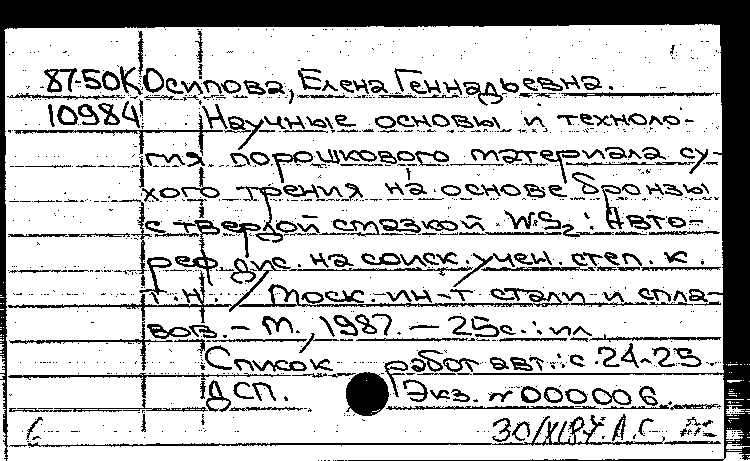 87-50К Осипова, Елена Геннадьевна.
10984 Научные основы и техноло-
гия порошкового материала су-
хого трения на основе бронзы
с твердой смазкой WS₂: Авто-
реф. дис. на соиск. учен. степ. к.
т.н. / Моск. ин-т стали и спла-
вов. - М., 1987. - 25с.: ил
Список работ авт.: с. 24-25
ДСП. Экз. № 000006.
6